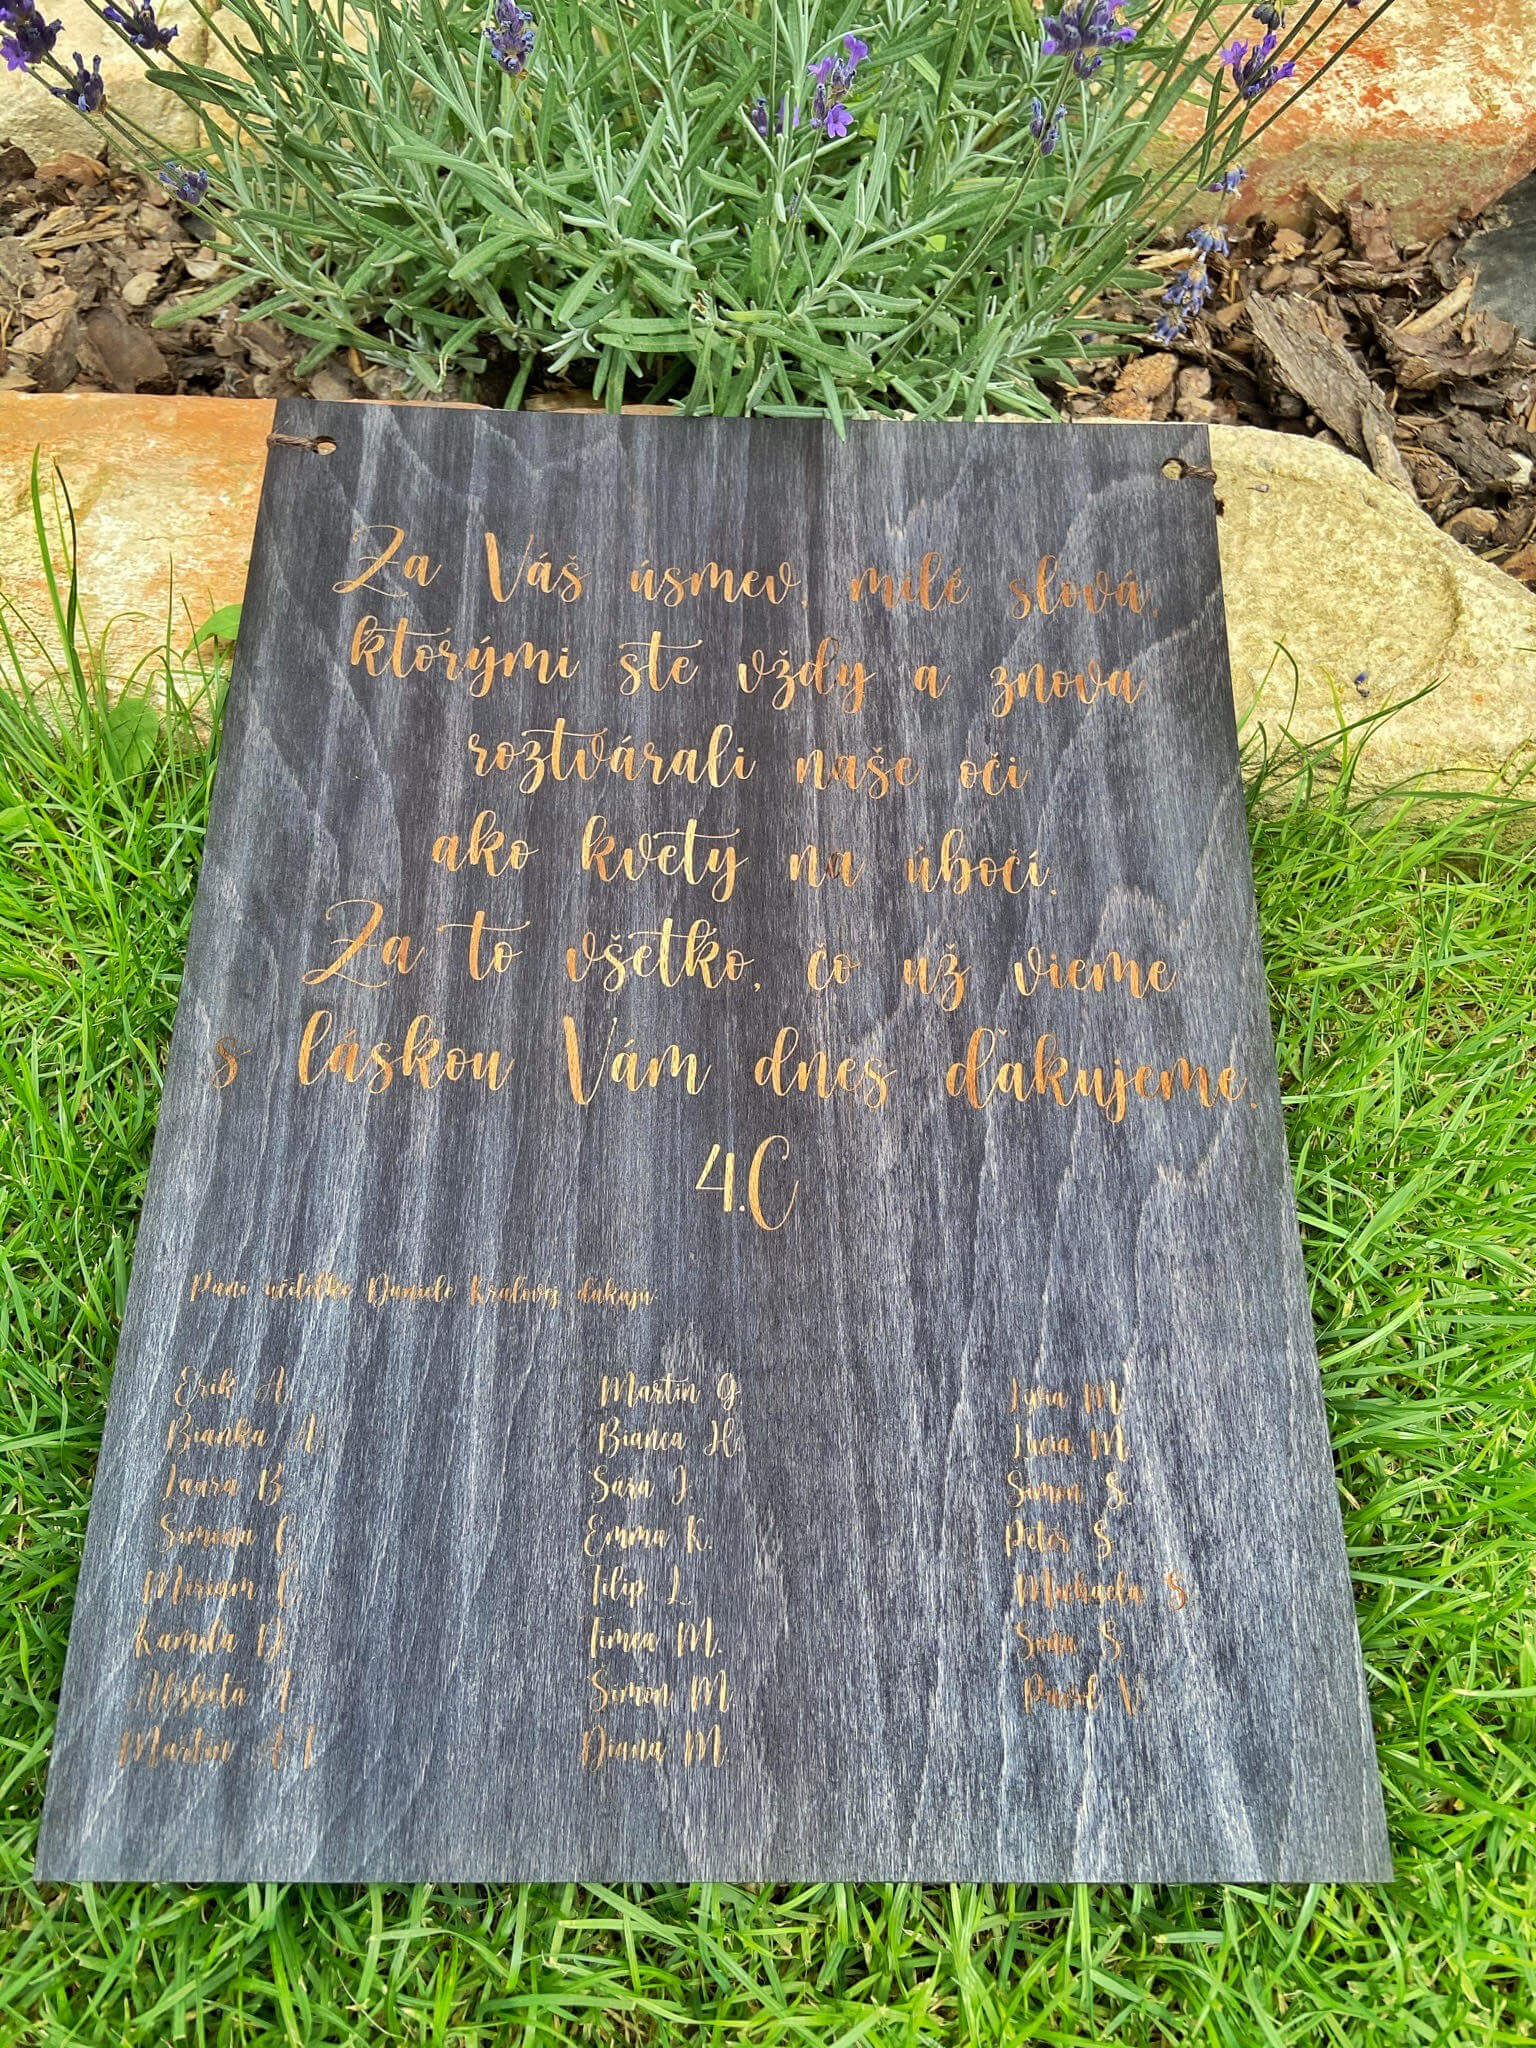 Za Váš úsmev, milé slová,
ktorými ste vždy a znova
roztvárali naše oči
ako kvety na úbočí.
Za to všetko, čo už vieme
s láskou Vám dnes ďakujeme.
4.C
Pani učiteľke Daniele Kráľovej ďakujú:
Erik A.
Bianka A.
Laura B.
Simona C.
Miriam C.
Kamila D.
Alžbeta F.
Martin
Martin G.
Bianca H.
Sára J.
Emma K.
Filip L.
Timea M.
Šimon M.
Diana M.
Lívia M.
Lucia M.
Simon S.
Peter S.
Michaela S.
Soňa S.
Pavol V.